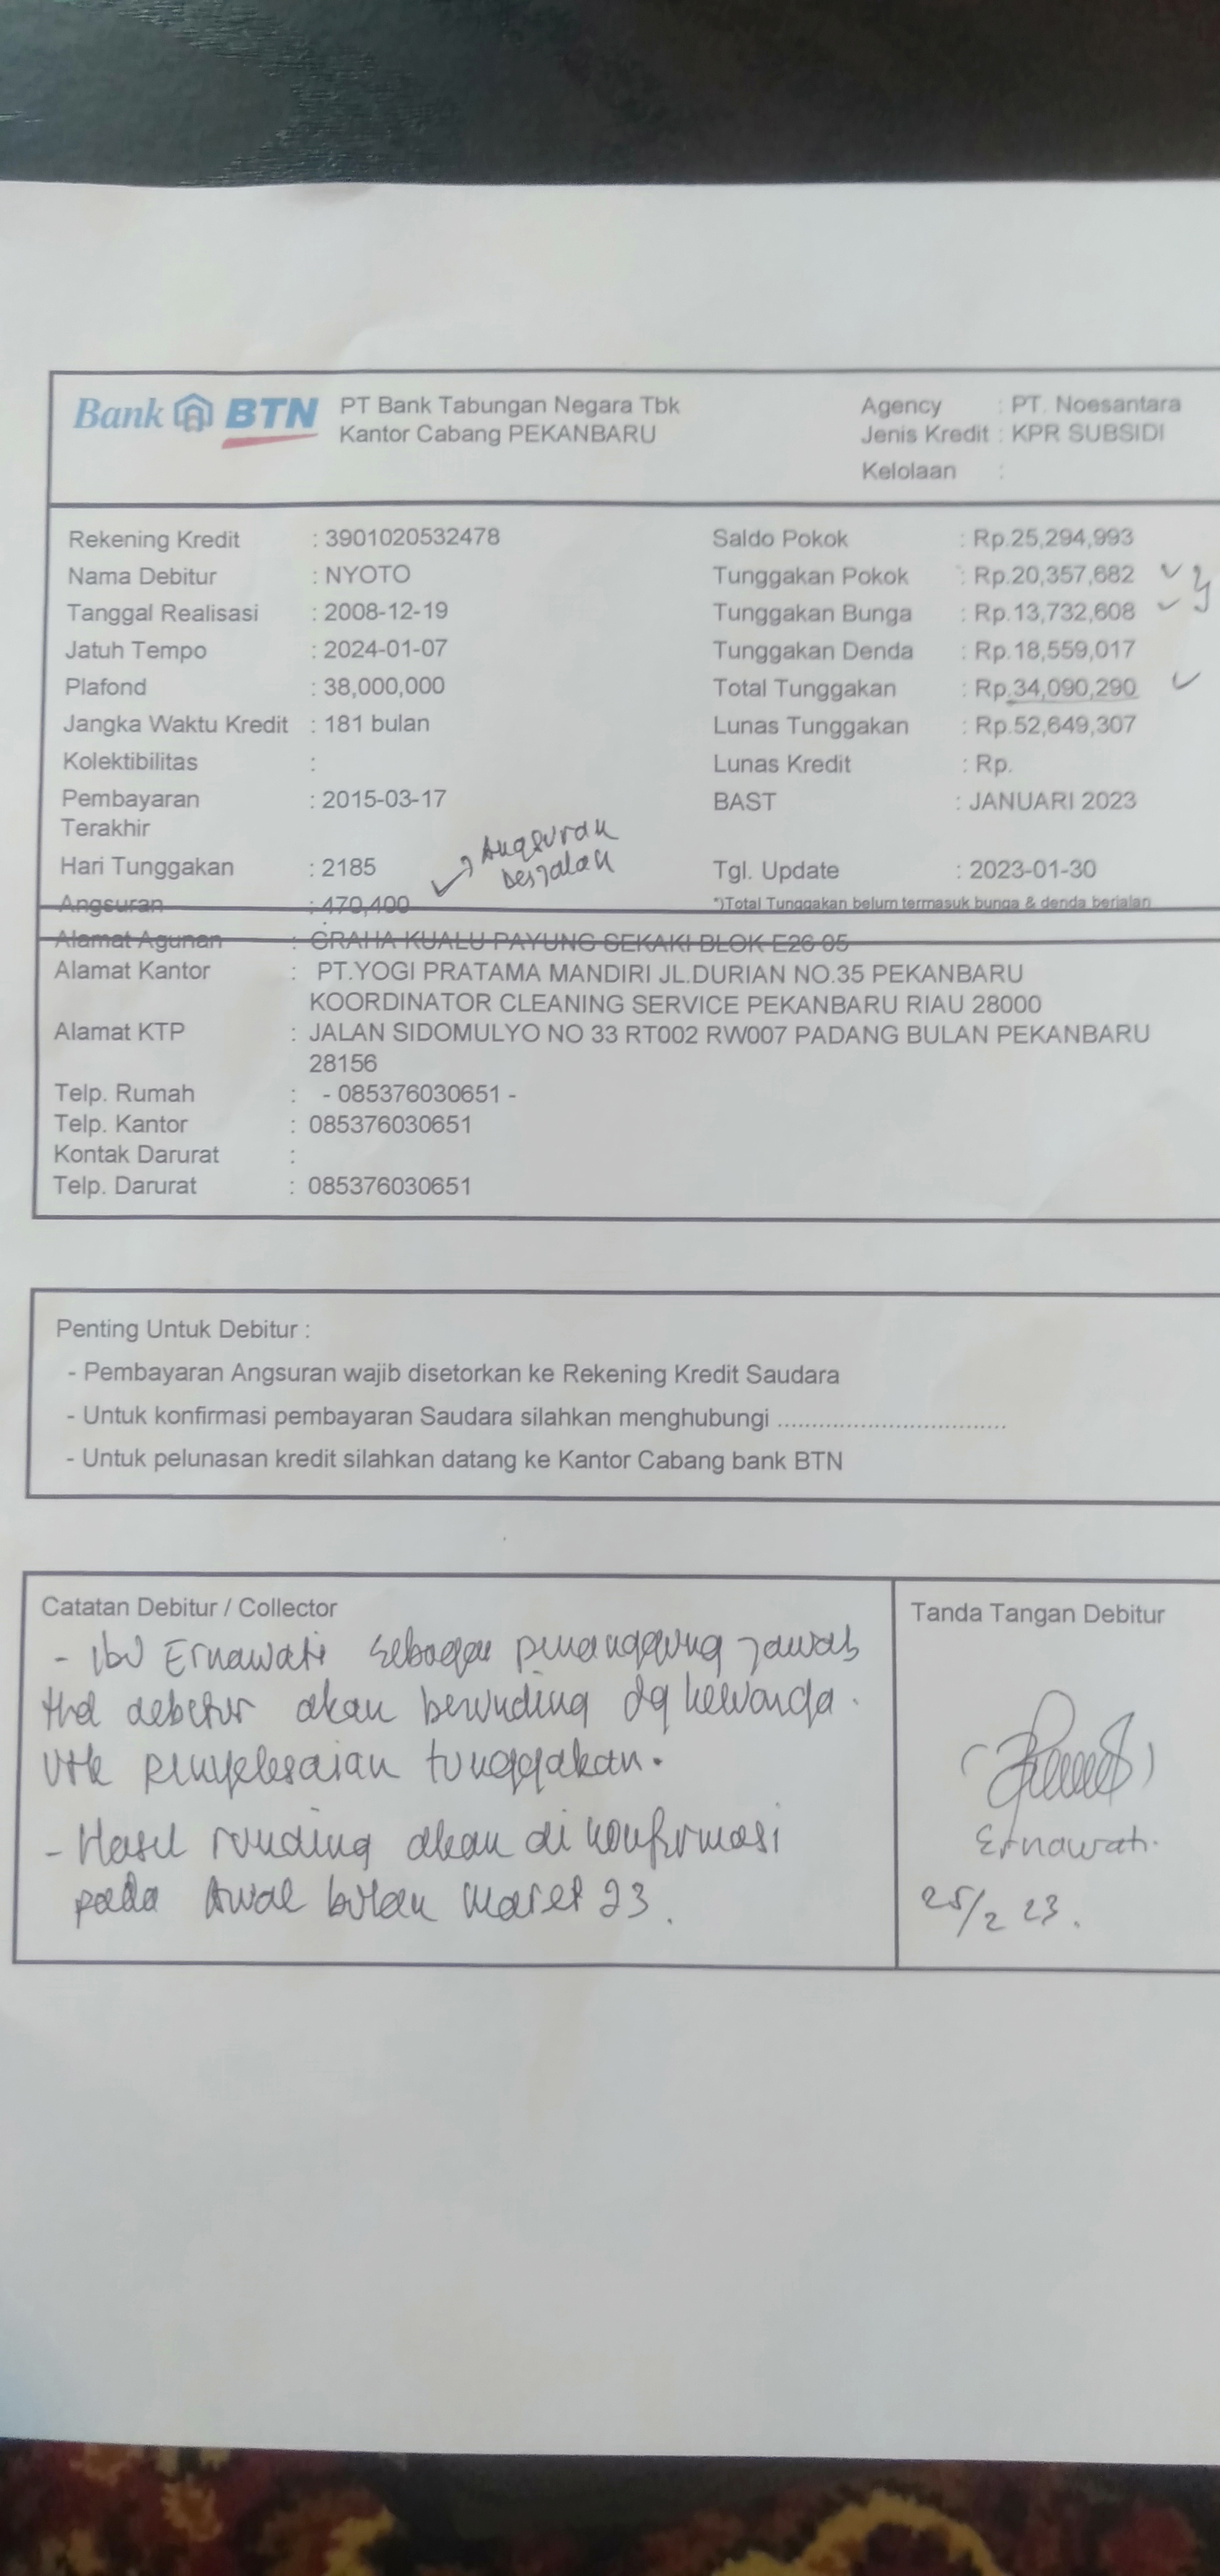 Bank BTN
PT Bank Tabungan Negara Tbk
Kantor Cabang PEKANBARU
Agency : PT. Noesantara
Jenis Kredit : KPR SUBSIDI
Kelolaan :
Rekening Kredit : 3901020532478
Nama Debitur : NYOTO
Tanggal Realisasi : 2008-12-19
Jatuh Tempo : 2024-01-07
Plafond : 38,000,000
Jangka Waktu Kredit : 181 bulan
Kolektibilitas :
Pembayaran Terakhir : 2015-03-17
Hari Tunggakan : 2185
Angsuran : 470,400
Angsuran
berjalan
Saldo Pokok : Rp.25,294,993
Tunggakan Pokok : Rp.20,357,682
Tunggakan Bunga : Rp.13,732,608
Tunggakan Denda : Rp.18,559,017
Total Tunggakan : Rp.34,090,290
Lunas Tunggakan : Rp.52,649,307
Lunas Kredit : Rp.
BAST : JANUARI 2023
Tgl. Update : 2023-01-30
*)Total Tunggakan belum termasuk bunga & denda berjalan
Alamat Agunan : GRAHA KUALU PAYUNG SEKAKI BLOK E26 05
Alamat Kantor : PT.YOGI PRATAMA MANDIRI JL.DURIAN NO.35 PEKANBARU
KOORDINATOR CLEANING SERVICE PEKANBARU RIAU 28000
Alamat KTP : JALAN SIDOMULYO NO 33 RT002 RW007 PADANG BULAN PEKANBARU
28156
Telp. Rumah : - 085376030651 -
Telp. Kantor : 085376030651
Kontak Darurat :
Telp. Darurat : 085376030651
Penting Untuk Debitur :
- Pembayaran Angsuran wajib disetorkan ke Rekening Kredit Saudara
- Untuk konfirmasi pembayaran Saudara silahkan menghubungi ..................................
- Untuk pelunasan kredit silahkan datang ke Kantor Cabang bank BTN
Catatan Debitur / Collector
- Ibu Ernawati sebagai penanggung jawab
thd debitur akan berunding dg keluarga.
utk penyelesaian tunggakan.
- Hasil runding akan di konfirmasi
pada Awal bulan Maret 23.
Tanda Tangan Debitur
Ernawati.
25/2 23.